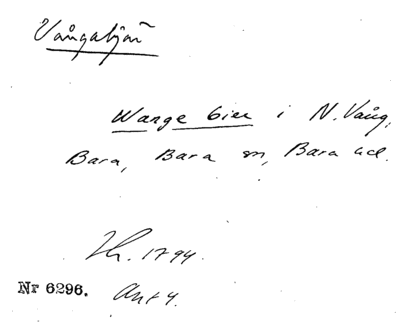 Vångabjär
Wange bier i N. Vång,
Bara, Bara sn, Bara hd.
Th. 1794.
Nr 6296. Akt 4.